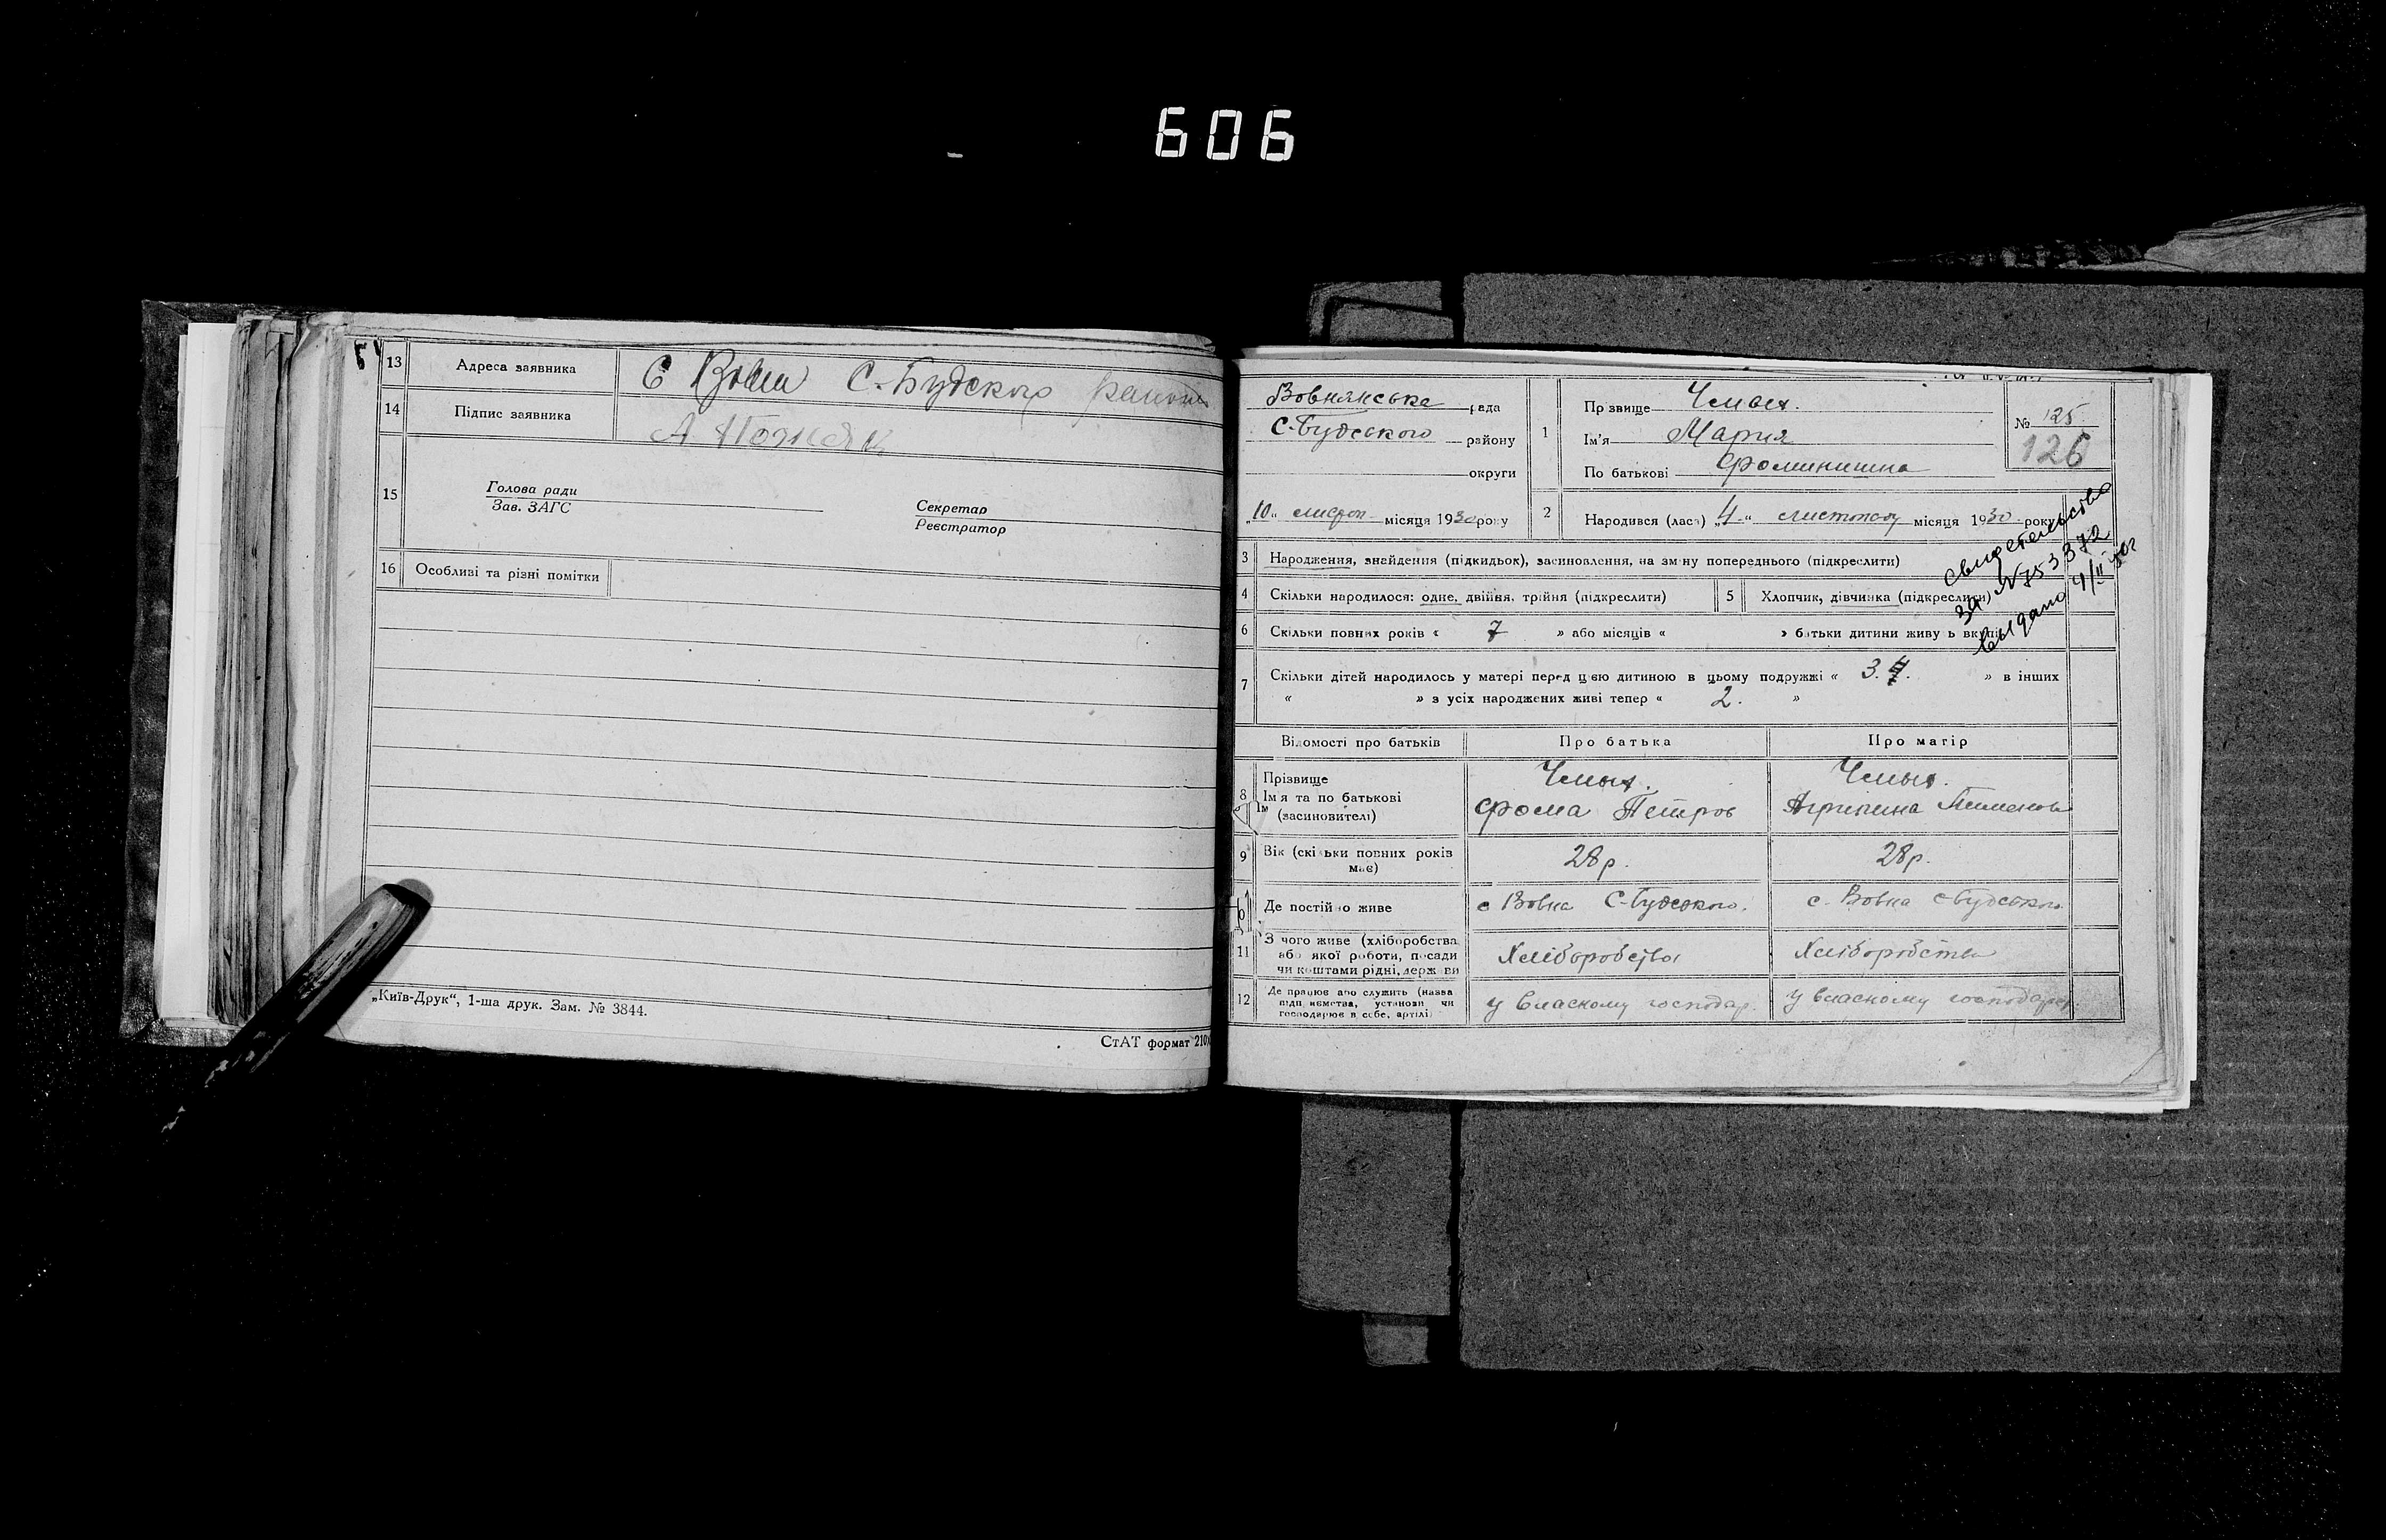 606
13 Адреса заявника С Вовна С.-Будского району
14 Підпис заявника А. Позняк
15 Голова ради
Зав. ЗАГС
Секретар
Реєстратор
16 Особливі та різні помітки
„Київ-Друк“, 1-ша друк. Зам. № 3844.
СтАТ формат 210
Вовнянська рада
С-Будського району
округи
„10“ листоп місяця 1930 року
1 Прізвище Чмых.
Ім'я Мария
По батькові Фоминишна
№ 125
126
2 Народився (лася) „4“ листопад місяця 1930 року
свидетельство
за N 753372
выдано 4/II 50г
3 Народження, знайдення (підкидьок), засиновлення, на зміну попереднього (підкреслити)
4 Скільки народилося: одне, двійня, трійня (підкреслити)
5 Хлопчик, дівчинка (підкреслити)
6 Скільки повних років « 7 » або місяців « » батьки дитини живуть вкупі
7 Скільки дітей народилось у матері перед цією дитиною в цьому подружжі « 3. » в інших
« » з усіх народжених живі тепер « 2. »
Відомості про батьків Про батька Про матір
8 Прізвище Чмых. Чмых.
Ім'я та по батькові Фома Петров Агрипина Пименов
(засиновителі)
9 Вік (скільки повних років має) 28 р. 28 р.
10 Де постійно живе с Вовна С-Будського. с. Вовна С-Будського
11 З чого живе (хліборобства, або якої роботи, посади чи коштами рідні, держави Хліборобства Хліборобства
12 Де працює або служить (назва підприємства, установи чи господарює в себе, артілі) у власному господар. у власному господарст